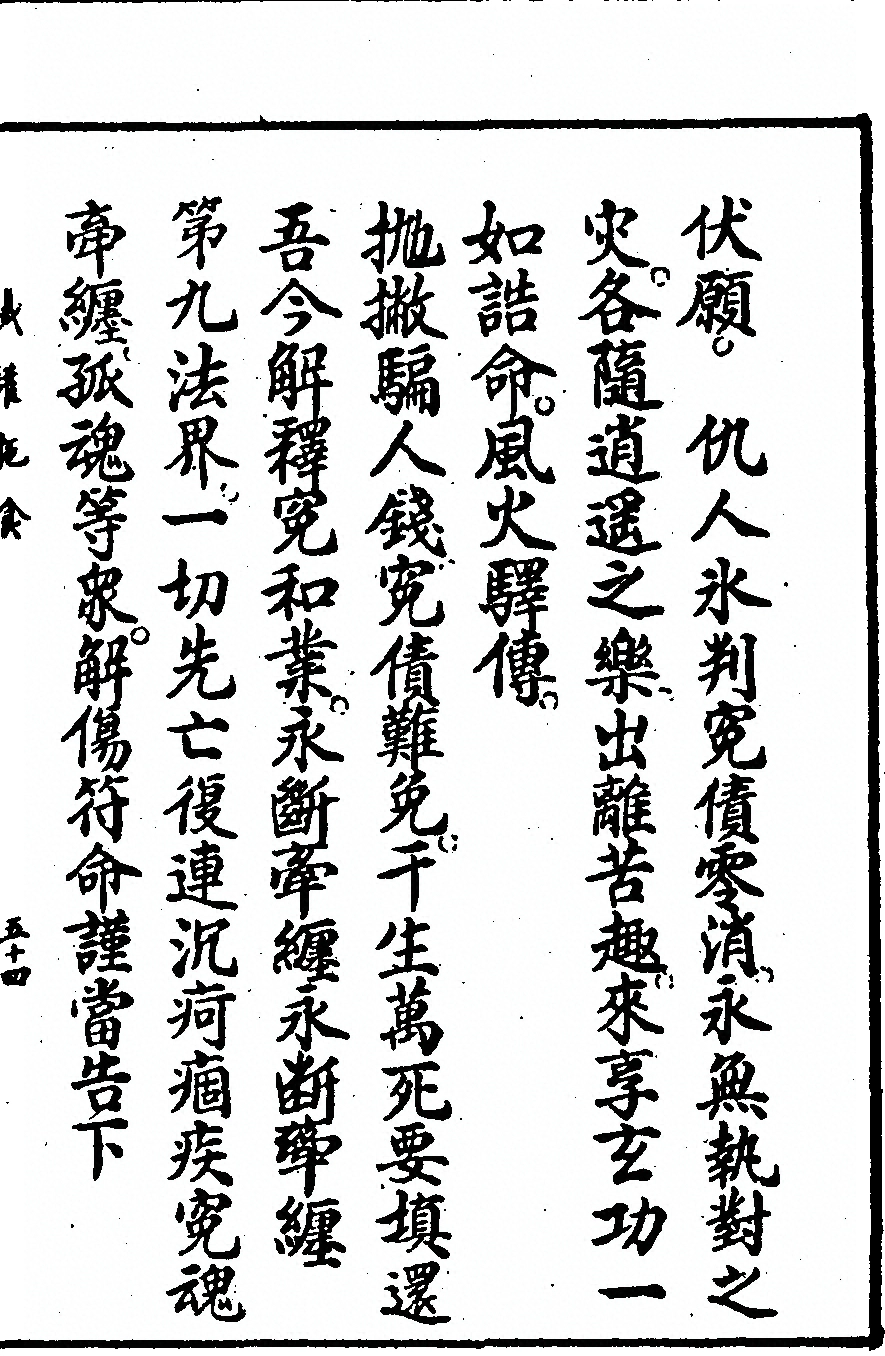 伏願。　仇人氷判寃債零消。永無執對之
灾。各隨逍遥之樂。出離苦趣。來享玄功一
如誥命。風火驛傳。
抛撇騙人錢。寃債難免。千生萬死要填還
吾今解釋寃和業。永斷牽纏永断牽纏
第九法界。一切先亡復連沉疴痼疾寃魂
牽纏。孤魂等衆。解傷符命謹當告下
食
五十四